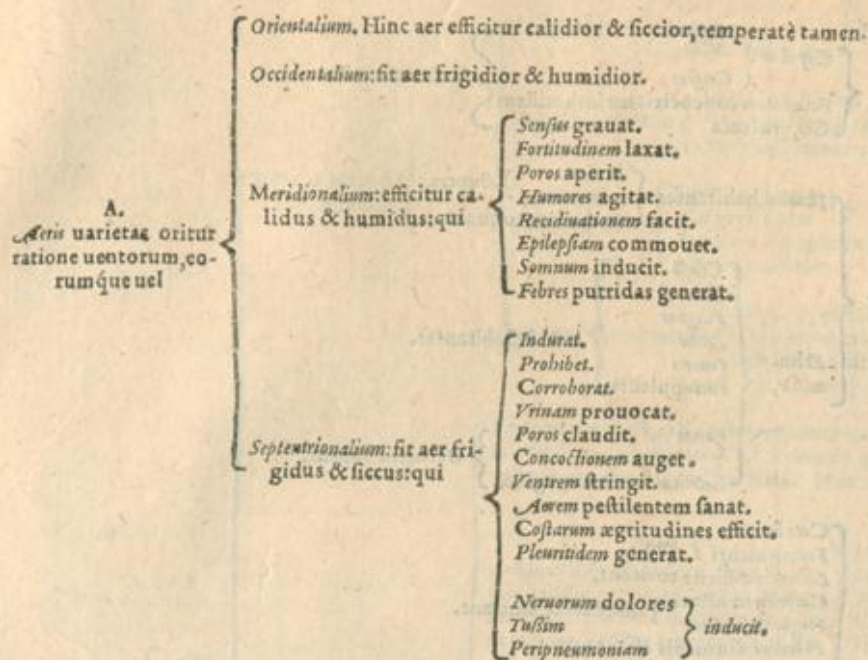 A.
Aeris uarietas oritur
ratione uentorum, eo-
rumq́ue uel
Orientalium. Hinc aer efficitur calidior & siccior, temperatè tamen.
Occidentalium: fit aer frigidior & humidior.
Meridionalium: efficitur ca-
lidus & humidus: qui
Sensus grauat.
Fortitudinem laxat.
Poros aperit.
Humores agitat.
Recidiuationem facit.
Epilepsiam commouet.
Somnum inducit.
Febres putridas generat.
Septentrionalium: fit aer fri-
gidus & siccus: qui
Indurat.
Prohibet.
Corroborat.
Vrinam prouocat.
Poros claudit.
Concoctionem auget.
Ventrem stringit.
Aerem pestilentem sanat.
Costarum ægritudines efficit.
Pleuritidem generat.
Neruorum dolores
Tussim
Peripneumoniam
inducit.